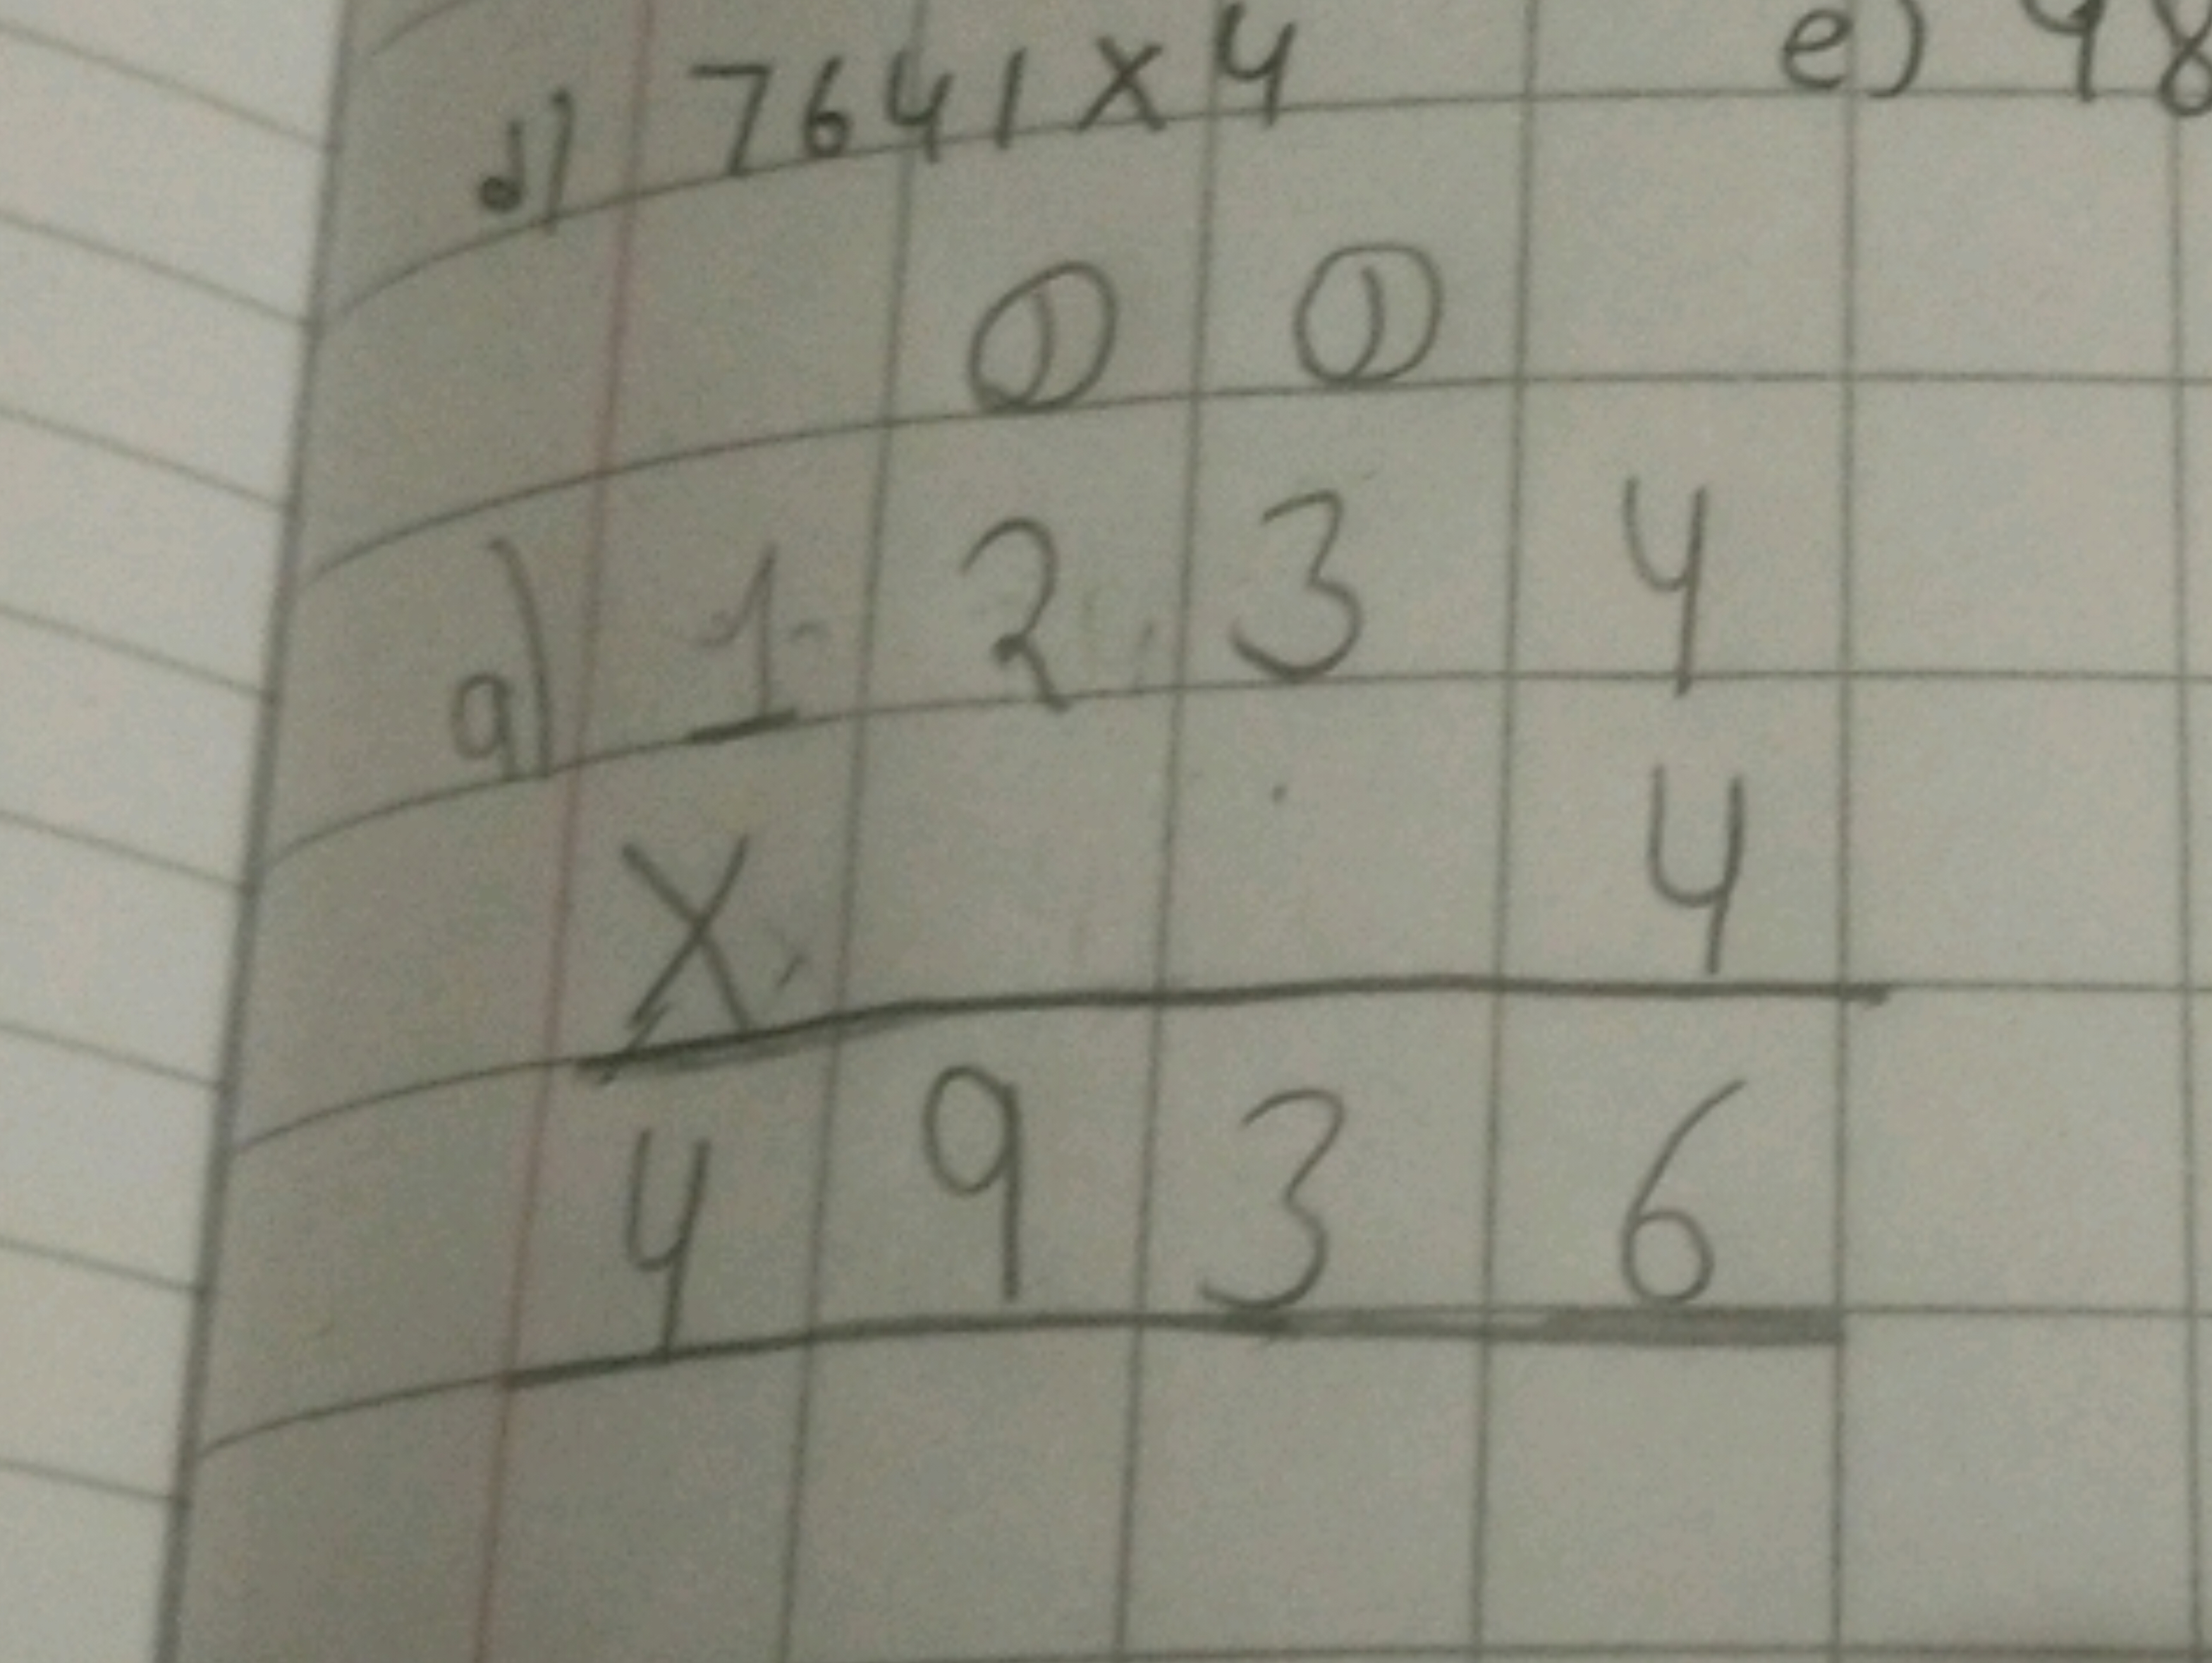 d) 7641 x 4 e) 98
① ①
a) 1 2 3 4
X 4
4 9 3 6